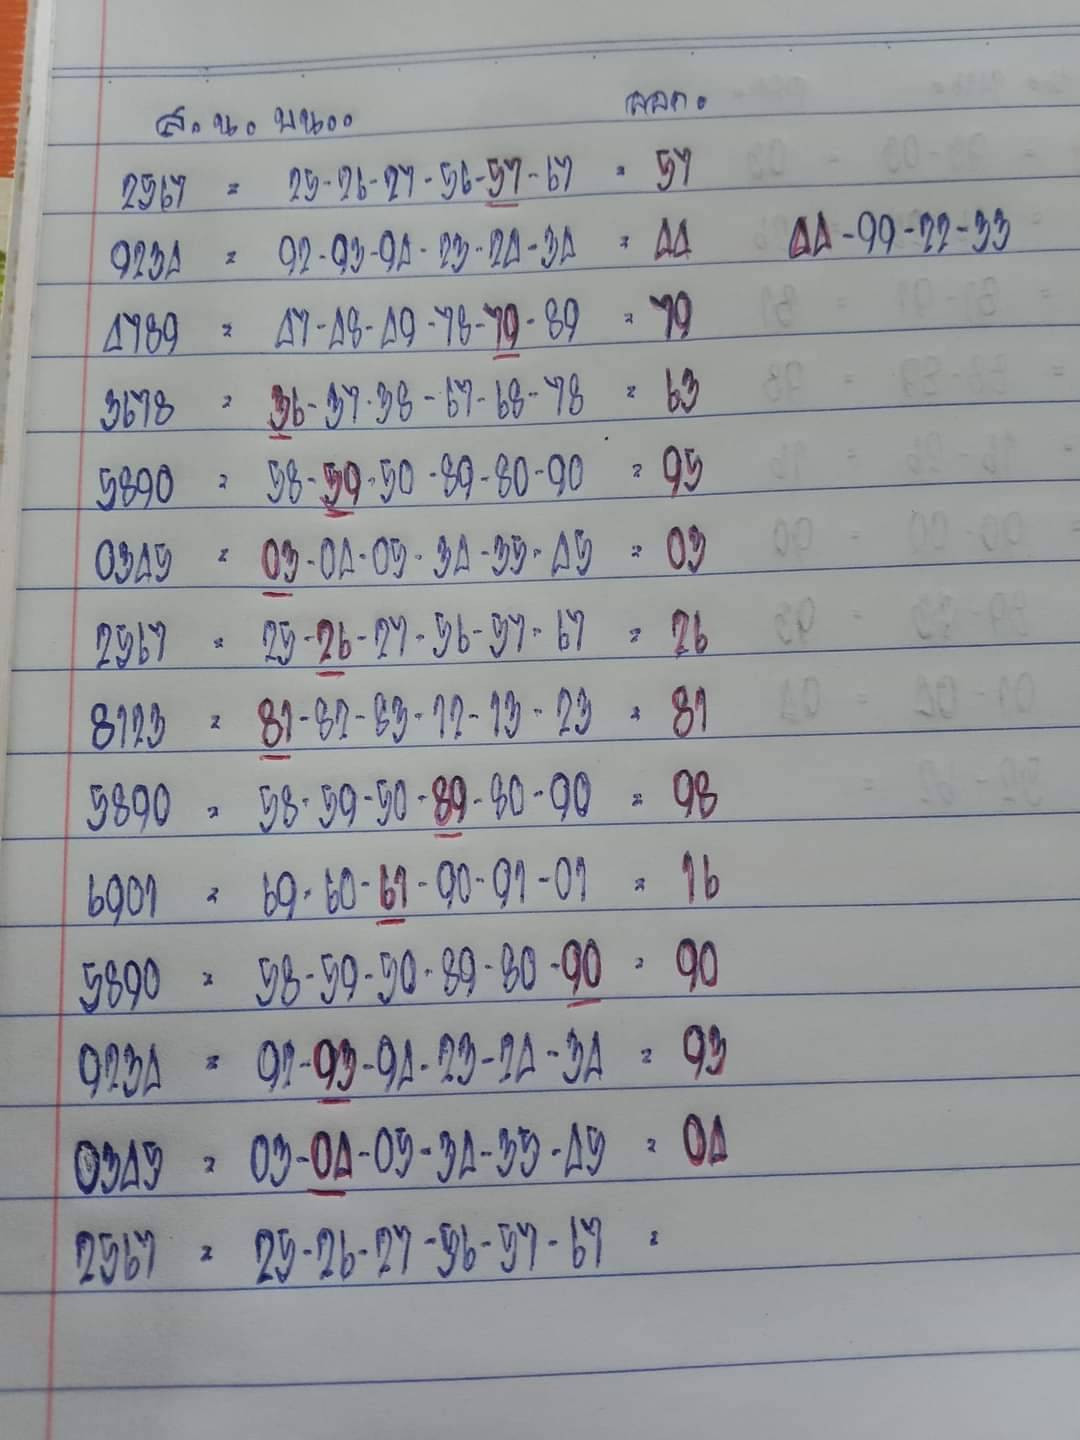 ส.น. บน.. ออก.
2567 = 25-26-27-56-57-67 = 57
9234 = 92-93-94-23-24-34 = 44 44-99-22-33
4789 = 47-48-49-78-79-89 = 79
3678 = 36-37-38-67-68-78 = 63
5890 = 58-59-50-89-80-90 = 95
0345 = 03-04-05-34-35-45 = 03
2567 = 25-26-27-56-57-67 = 26
8123 = 81-82-83-12-13-23 = 81
5890 = 58-59-50-89-80-90 = 98
6901 = 69-60-61-90-91-01 = 16
5890 = 58-59-50-89-80-90 = 90
9234 = 92-93-94-23-24-34 = 93
0345 = 03-04-05-34-35-45 = 04
2567 = 25-26-27-56-57-67 =